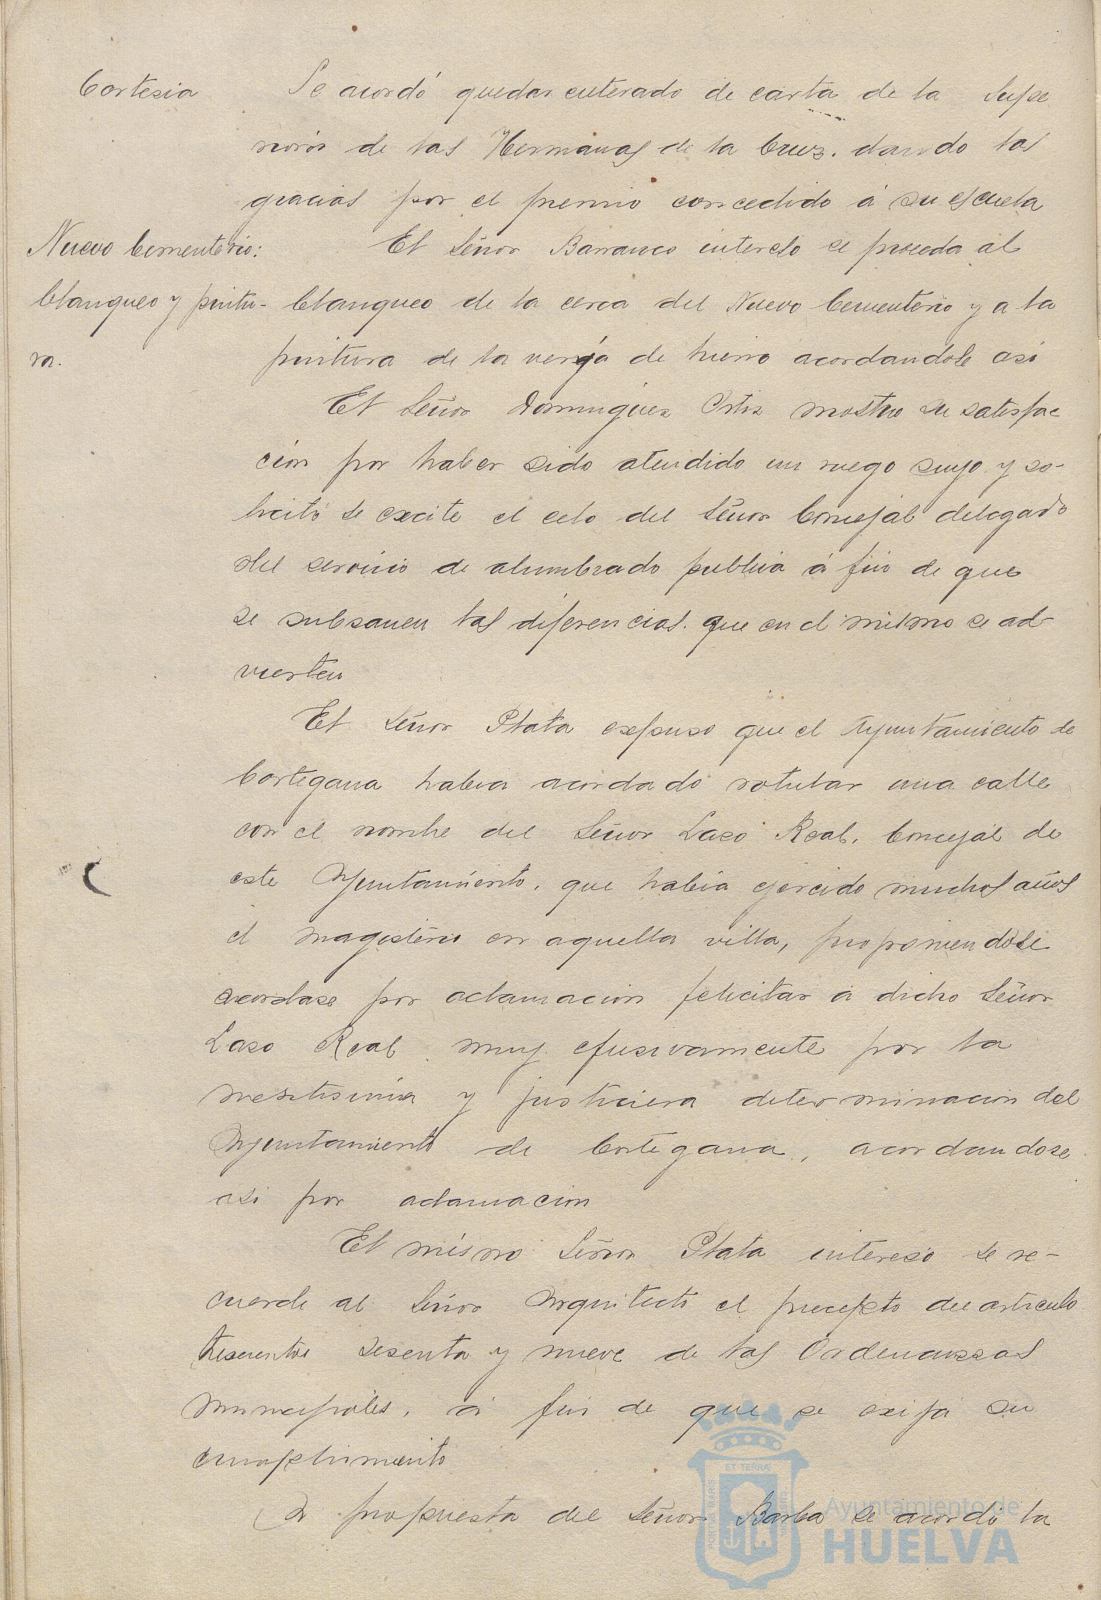 Cortesia
Se acordó quedar enterado de carta de la Supe
riora de las Hermanas de la Cruz. dando las
gracias por el premio concedido á su escuela
Nuevo Cementerio:
Blanqueo y pintu-
ra.
El Señor Barranco intereso se proceda al
blanqueo de la cerca del Nuevo Cementerio y a la
pintura de la verja de hierro acordandose asi
El Señor Dominguez Ortiz mostro su satisfac
cion por haber sido atendido un ruego suyo y so-
licitó se excite el celo del Señor Concejal delegado
del servicio de alumbrado publico á fin de que
se subsanen las diferencias que en el mismo se ad-
vierten
El Señor Plata expuso que el Ayuntamiento de
Cortegana habia acordado rotular una calle
con el nombre del Señor Laso Real, Concejal de
este Ayuntamiento, que habia ejercido muchos años
el magisterio en aquella villa, proponiendose
acordase por aclamacion felicitar a dicho Señor
Laso Real muy efusivamente por la
meritisima y justiciera determinacion del
Ayuntamiento de Cortegana, acordandose
asi por aclamacion
El mismo Señor Plata intereso se re-
cuerde al Señor Arquitecto el precepto del articulo
trescientos sesenta y nueve de las Ordenanzas
municipales, á fin de que se exija su
cumplimiento
A propuesta del Señor Barba se acordó la
ET TERRAE
Ayuntamiento de
HUELVA